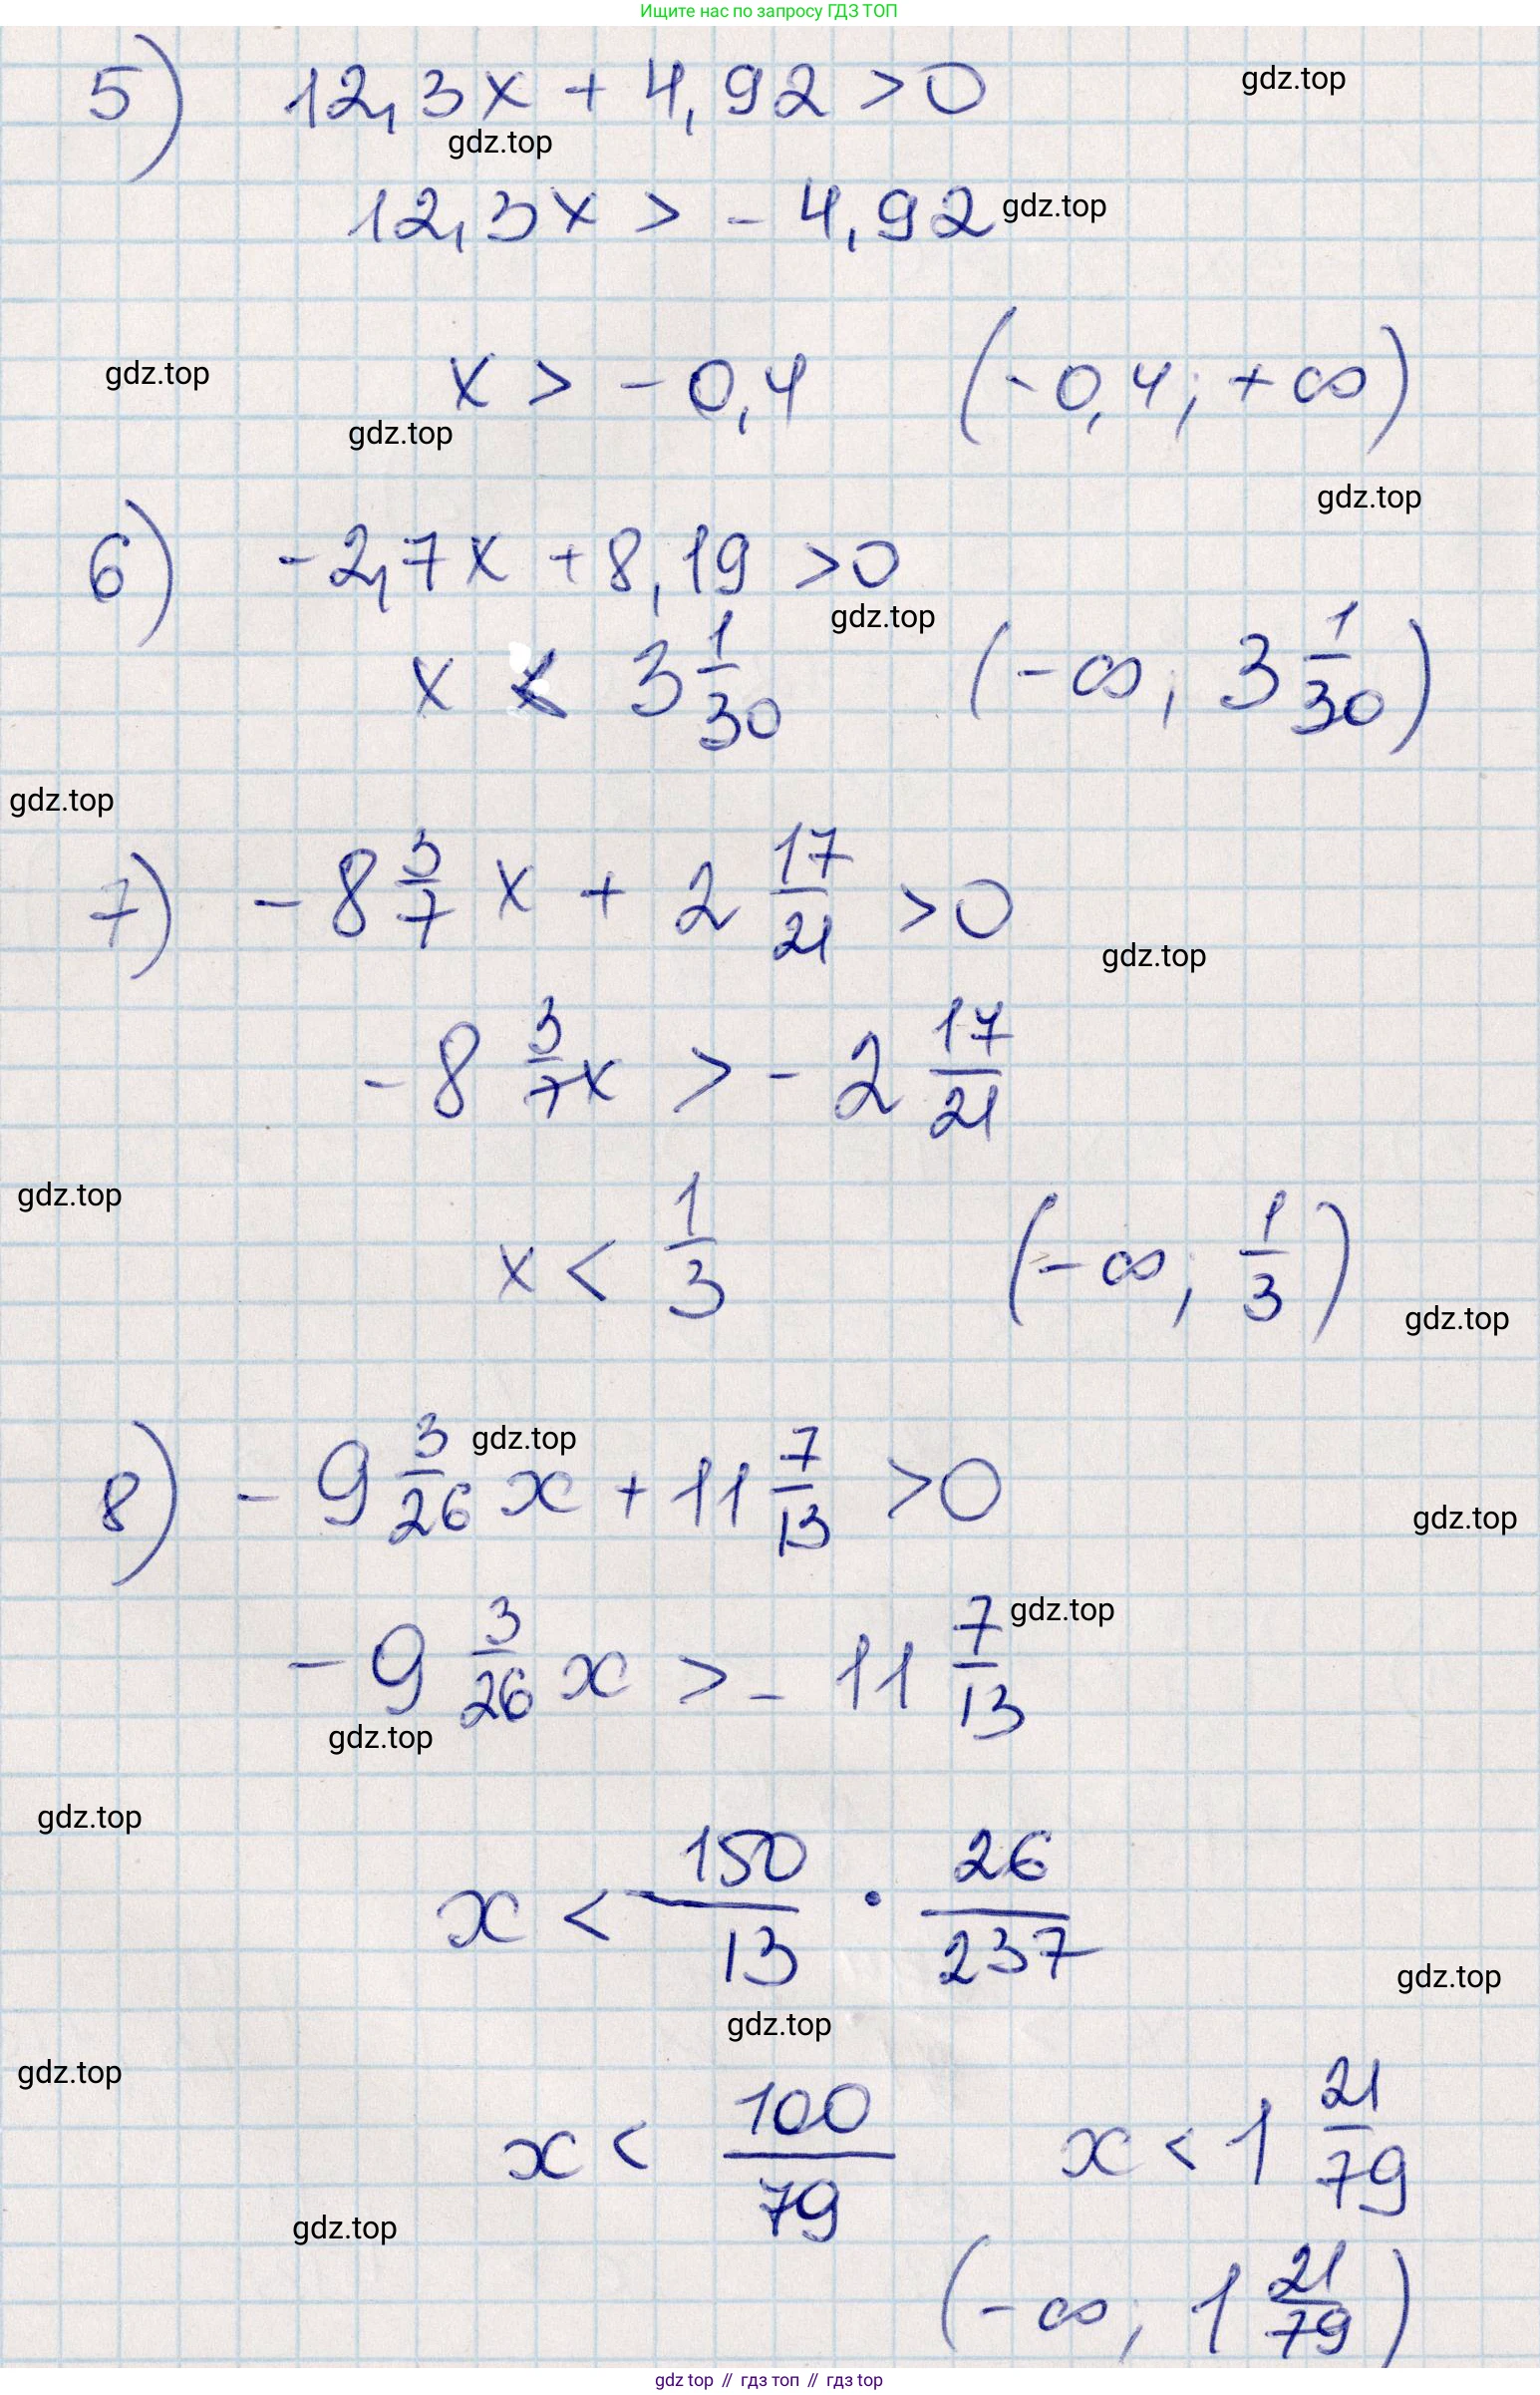 Ищите нас по запросу ГДЗ ТОП
5) 12,3x + 4,92 > 0
gdz.top
gdz.top
12,3x > - 4,92
gdz.top
x > - 0,4 (-0,4; +∞)
gdz.top
gdz.top
gdz.top
6) -2,7x + 8,19 > 0
gdz.top
x < 3 1/30 (-∞; 3 1/30)
gdz.top
7) - 8 3/7 x + 2 17/21 > 0
gdz.top
- 8 3/7 x > - 2 17/21
gdz.top
x < 1/3 (-∞; 1/3)
gdz.top
gdz.top
8) - 9 3/26 x + 11 7/13 > 0
gdz.top
- 9 3/26 x > - 11 7/13
gdz.top
gdz.top
gdz.top
x < 150/13 · 26/237
gdz.top
gdz.top
gdz.top
x < 100/79 x < 1 21/79
gdz.top
(-∞; 1 21/79)
gdz top // гдз топ // гдз top